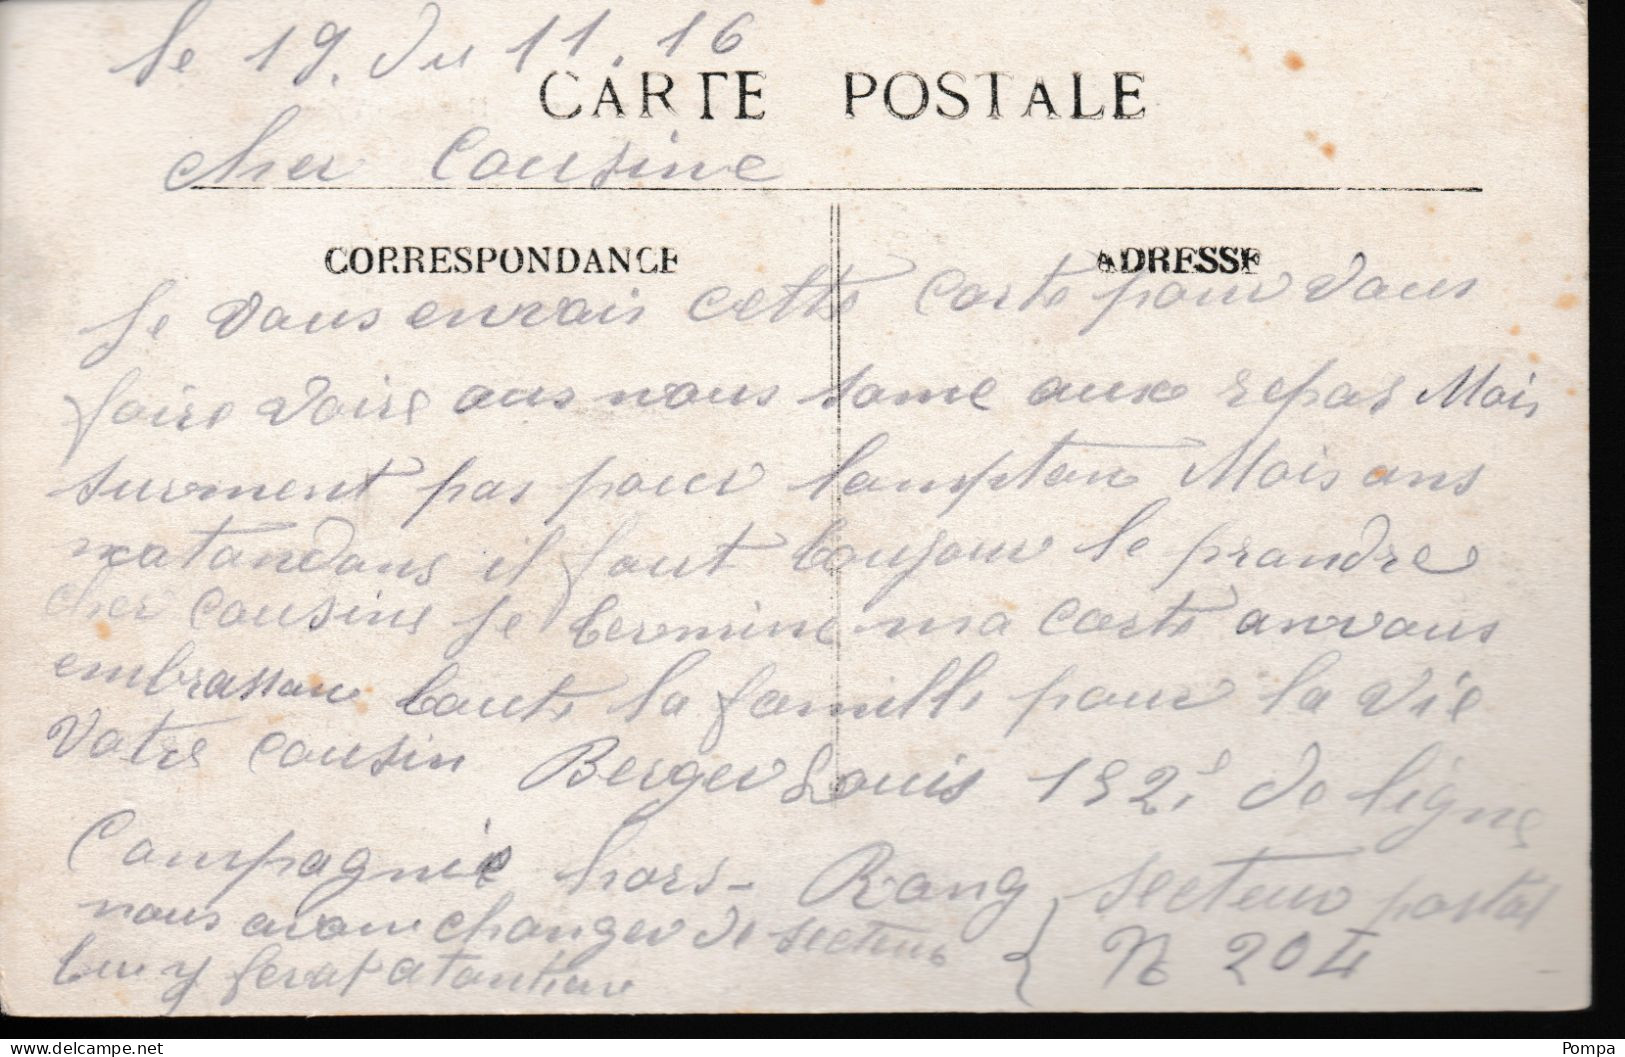 le 19. Du 11. 16
CARTE POSTALE
cher Cousine
CORRESPONDANCE
ADRESSE
Je vous envois cette Carte pour vous
faire voire ous nous some aux repas Mois
surment pas pour lompton Mois ans
natandans il faut toujour le prandre
cher cousine je termine ma carte anvous
embrassan toute la famille pour la vie
Votre cousin Berger Louis 152e De ligne
Compagnie hors-Rang secteur postal
nous avon changer de secteur N 204
tu y ferat atantion
Pompa